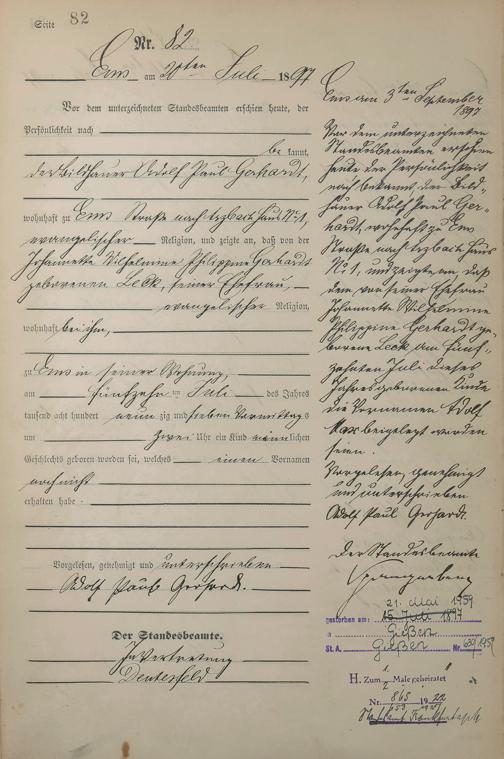 Seite 82
Nr. 82.
Ems am 20ten Juli 1897
Vor dem unterzeichneten Standesbeamten erschien heute, der
Persönlichkeit nach
be kannt,
der Bildhauer Adolf Paul Gerhardt,
wohnhaft zu Ems Straße nach Haus No 1,
evangelischer Religion, und zeigte an, daß von der
Johannette Wilhelmine Philippine Gerhardt
geborenen Leck, seiner Ehefrau,
evangelischer Religion,
wohnhaft bei ihm,
zu Ems in seiner Wohnung,
am fünfzehn ten Juli des Jahres
tausend acht hundert neun zig und sieben Vormittags
um zwei Uhr ein Kind männlichen
Geschlechts geboren worden sei, welches einen Vornamen
noch nicht
erhalten habe
Vorgelesen, genehmigt und unterschrieben
Adolf Paul Gerhardt.
Der Standesbeamte.
In Vertretung
Ems am 3ten September
1897
Vor dem unterzeichneten
Standesbeamten erschien
heute der Persönlichkeit
nach bekannt der Bild-
hauer Adolf Paul Ger-
hardt, wohnhaft zu Ems
Straße nach Haus
No 1, und zeigte an, daß
dem von seiner Ehefrau
Johannette Wilhelmine
Philippine Gerhardt ge-
borene Leck am fünf-
zehnten Juli dieses
Jahres geborenen Kinde
die Vornamen Adolf
Max beigelegt worden
seien.
Vorgelesen, genehmigt
und unterschrieben
Adolf Paul Gerhardt.
Der Standesbeamte
21. Mai 1959
gestorben am: 15. Juli 1897
in Gießen
St. A. Gießen Nr. 630/1959
H. Zum 1 Male geheiratet
Nr. 865 1922
Standesamt Frankfurt